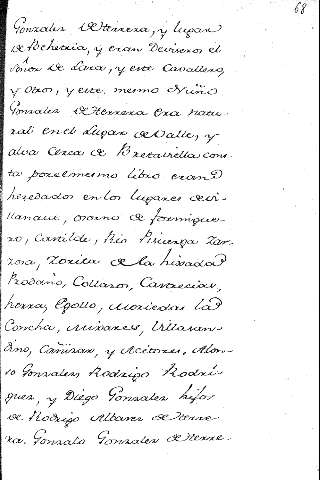 68
Gonzalez de Herrera, y lugar
de Behetria, y eran Deviseros el
Señor de Lara, y este Cavallero,
y otros, y este mismo Nuño
Gonzalez de Herrera era natu-
ral en el Lugar de Valle, y
alva Cerca de Bretavilla cons-
ta por el mismo libro eran
heredados en los lugares de vi-
llanave, osorno de formigue-
ro, Castilde, Rio Pisuerga Zar-
zosa, Zorita de la
Rodaño, Collazos, Castrecias,
porras, Gollo, Moriedas la
Concha, Mixares, Villavan-
dino, Cañizar, y Acitores, Alon-
so Gonzalez Rodrigo Rodri-
guez, y Diego Gonzalez hijos
de Rodrigo Albarez de Herre-
ra. Gonzalo Gonzalez de Herre-